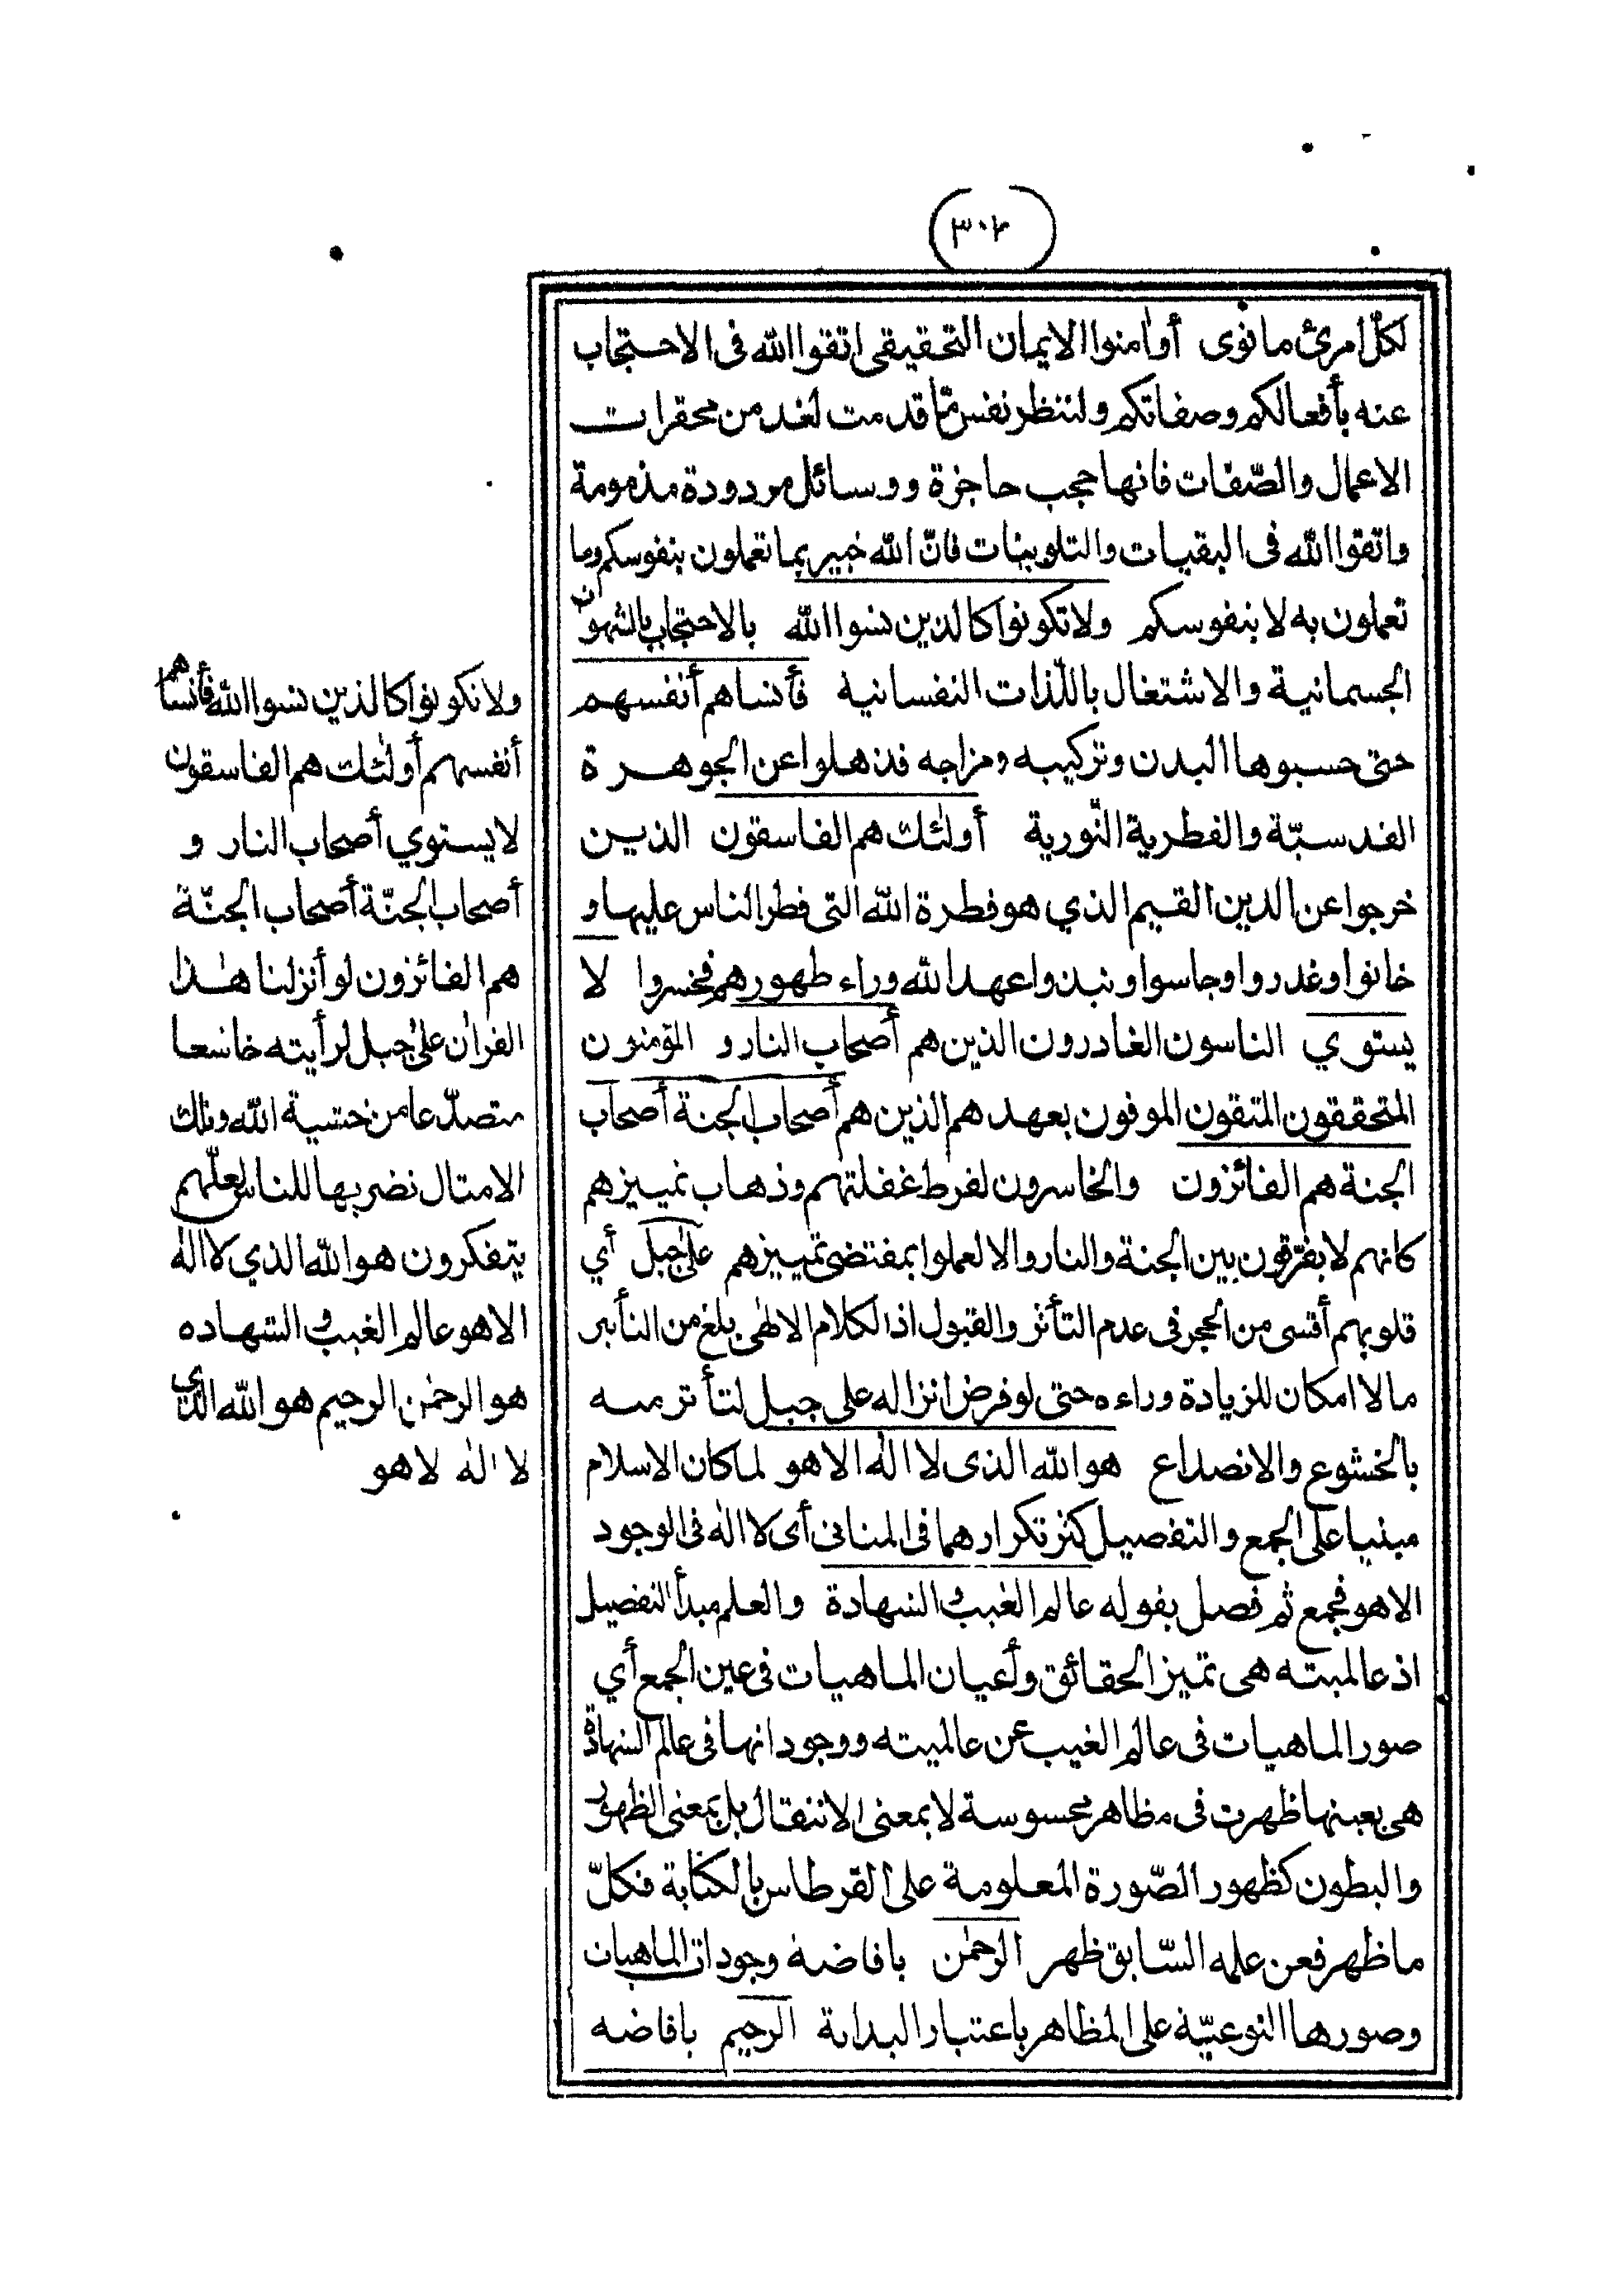 ٣٠٢
لكل امرئ ما نوى أو اٰمنوا الايمان التحقيقى اتقوا الله فى الاحتجاب
عنه بأفعالكم وصفاتكم ولتنظر نفس مّا قدمت لغد من محقرات
الاعمال والصّفات فانها حجب حاجزة ووسائل مردودة مذمومة
واتقوا الله فى البقيات والتلوينات فانّ الله خبير بما تعملون بنفوسكم وما
تعملون به لا بنفوسكم ولا تكونوا كالذين نسوا الله بالاحتجاب بالشهوات
الجسمانية والاشتغال باللّذات النفسانية فأنساهم أنفسهم
حتى حسبوها البدن وتركيبه ومزاجه فذهلوا عن الجوهرة
القدسيّة والفطرية النّورية أولٰئك هم الفاسقون الذين
خرجوا عن الدين القيم الذي هو فطرة الله التى فطر الناس عليها و
خانوا وغدروا وجاسوا ونبذوا عهد الله وراء ظهورهم فخسروا لا
يستوي الناسون الغادرون الذين هم أصحاب النار و المؤمنون
المتحققون المتقون الموفون بعهدهم الذين هم أصحاب الجنة أصحاب
الجنة هم الفائزون والخاسرون لفرط غفلتهم وذهاب تمييزهم
كانهم لا يفرّقون بين الجنة والنار والا لعملوا بمقتضى تمييزهم على جبل أي
قلوبهم أقسى من الحجر فى عدم التأثر والقبول اذ الكلام الالٰهى بلغ من التأثير
ما لا امكان للزيادة وراءه حتى لو فرض انزاله على جبل لتأثر منه
بالخشوع والانصداع هو الله الذى لا الٰه الا هو لما كان الاسلام
مبنيا على الجمع والتفصيل كثر تكرارهما فى المثانى أى لا الٰه فى الوجود
الا هو فجمع ثم فصل بقوله عالم الغيب والشهادة والعلم مبدأ التفصيل
اذ عالميته هى تميز الحقائق وأعيان الماهيات فى عين الجمع أي
صور الماهيات فى عالم الغيب عن عالميته ووجوداتها فى عالم الشهادة
هى بعينها ظهرت فى مظاهر محسوسة لا بمعنى الانتقال بل بمعنى الظهور
والبطون كظهور الصّورة المعلومة على القرطاس بالكتابة فكلّ
ما ظهر فعن علمه السّابق ظهر الرحمٰن بافاضة وجودات الماهيات
وصورها النوعيّة على المظاهر باعتبار البداية الرحيم بافاضه
ولا تكونوا كالذين نسوا الله فأنساهم
أنفسهم أولٰئك هم الفاسقون
لا يستوي أصحاب النار و
أصحاب الجنّة أصحاب الجنّة
هم الفائزون لو أنزلنا هٰذا
القراٰن على جبل لرأيته خاشعا
متصدّعا من خشية الله وتلك
الامثال نضربها للناس لعلّهم
يتفكرون هو الله الذي لا الٰه
الا هو عالم الغيب والشهاده
هو الرحمٰن الرحيم هو الله الذي
لا الٰه لا هو